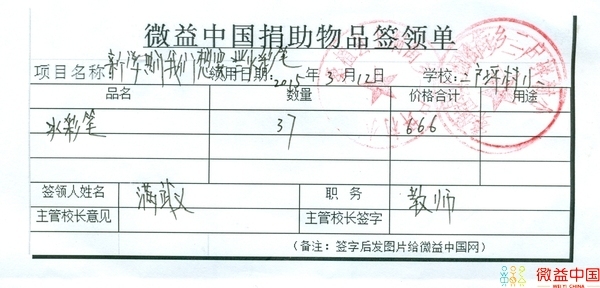 微益中国捐助物品签领单
项目名称 新学期我们想要 水彩笔 领用日期:2015年3月12日 学校:二户坪村小
品名 数量 价格合计 用途
水彩笔 37 666
签领人姓名 满 职务 教师
主管校长意见 主管校长签字
(备注:签字后发图片给微益中国网)
微益中国
WEIYI CHINA